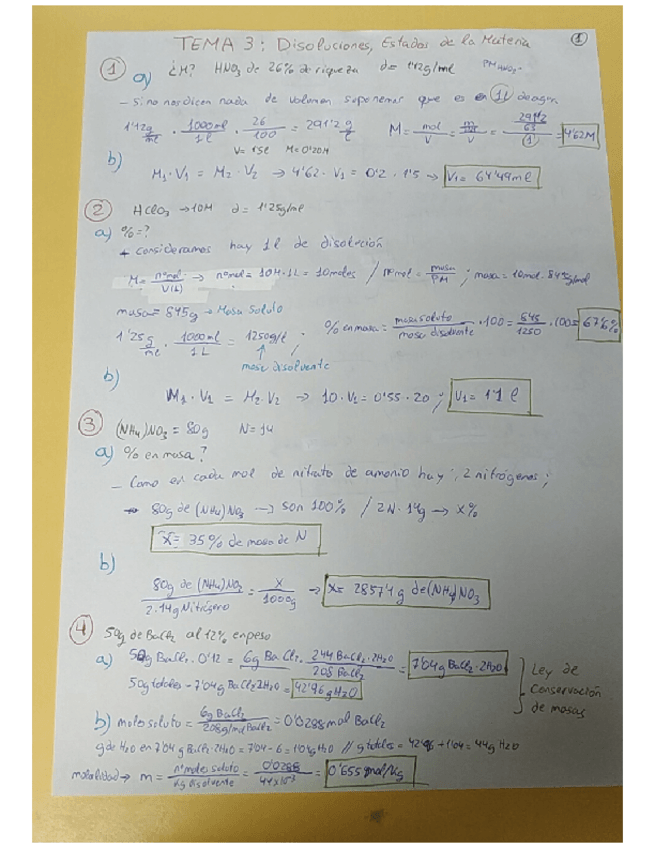 TEMA 3: Disoluciones, Estados de la Materia 1
1 a) ¿M? HNO3 de 26% de riqueza d= 1'12g/ml PM HNO3
- Si no nos dicen nada de volumen suponemos que es en 1L de agua
1'12 g/ml · 1000ml/1l · 26/100 = 291'2 g/l M = mol/V = = 291'2/63/1 = 4'62M
b) V= 1'5l M=0'20M
M1·V1 = M2·V2 → 4'62·V1 = 0'2·1'5 → V1= 64'49ml
2 HClO3 → 10M d= 1'25g/ml
a) %=?
+ consideramos hay 1l de disolución
M= nºmol/V(L) → nºmol= 10M·1L = 10moles / nºmol = masa/PM ; masa= 10mol·84'5g/mol
masa= 845g → Masa soluto
1'25 g/ml · 1000ml/1L = 1250g/l · % en masa = masa soluto/masa disolvente ·100 = 845/1250 ·100= 67'6%
masa disolvente
b) M1·V1 = M2·V2 → 10·V2 = 0'55·20 ; V1= 1'1 l
3 (NH4)NO3 = 80g N=14
a) % en masa?
- Como en cada mol de nitrato de amonio hay 2 nitrógenos;
→ 80g de (NH4)NO3 → son 100% / 2N·14g → x%
X= 35% de masa de N
b) 80g de (NH4)NO3/2·14g Nitrógeno = X/1000g → X= 2857'1 g de (NH4)NO3
4 50g de BaCl2 al 12% en peso
a) 50g BaCl2 · 0'12 = 6g BaCl2 · 244 BaCl2·2H2O/208 BaCl2 = 7'04g BaCl2·2H2O
50g totales - 7'04g BaCl2 2H2O = 42'96 g H2O
Ley de
Conservación
de masas
b) moles soluto = 6g BaCl2/208g/mol BaCl2 = 0'0288 mol BaCl2
g de H2O en 7'04 g BaCl2·2H2O = 7'04 - 6 = 1'04g H2O // g totales = 42'96 + 1'04 = 44g H2O
molalidad → m = nºmoles soluto/Kg disolvente = 0'0288/44x10^-3 = 0'655 mol/Kg